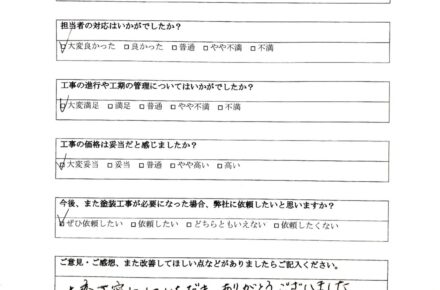 担当者の対応はいかがでしたか？
□大変良かった □良かった □普通 □やや不満 □不満
工事の進行や工期の管理についてはいかがでしたか？
□大変満足 □満足 □普通 □やや不満 □不満
工事の価格は妥当だと感じましたか？
□大変妥当 □妥当 □普通 □やや高い □高い
今後、また塗装工事が必要になった場合、弊社に依頼したいと思いますか？
□ぜひ依頼したい □依頼したい □どちらともいえない □依頼したくない
ご意見・ご感想、また改善してほしい点などがありましたらご記入ください。
ありがとうございました